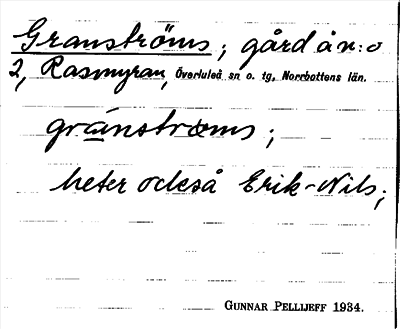 Granströms; gård å n:o
2, Rasmyran, Överluleå sn o. tg, Norrbottens län.
gránstroms;
heter också Erik-Nils;
GUNNAR PELLIJEFF 1934.